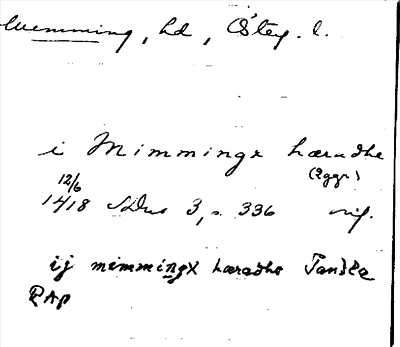 Memming, hd, Östg. l.
i Mimmingx hæradhe
(2ggr)
12/6
1418 SDns 3, s. 336 orig.
ij mimmingx hæradhe
PAp